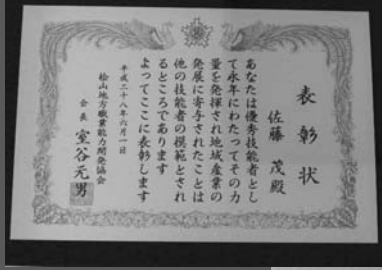 表彰状
佐藤 茂殿
あなたは優秀技能者とし
て永年にわたってその力
量を発揮され地域産業の
発展に寄与されたことは
他の技能者の模範とされ
るところであります
よってここに表彰します
平成二十八年六月一日
桧山地方職業能力開発協会
会長 室谷元男